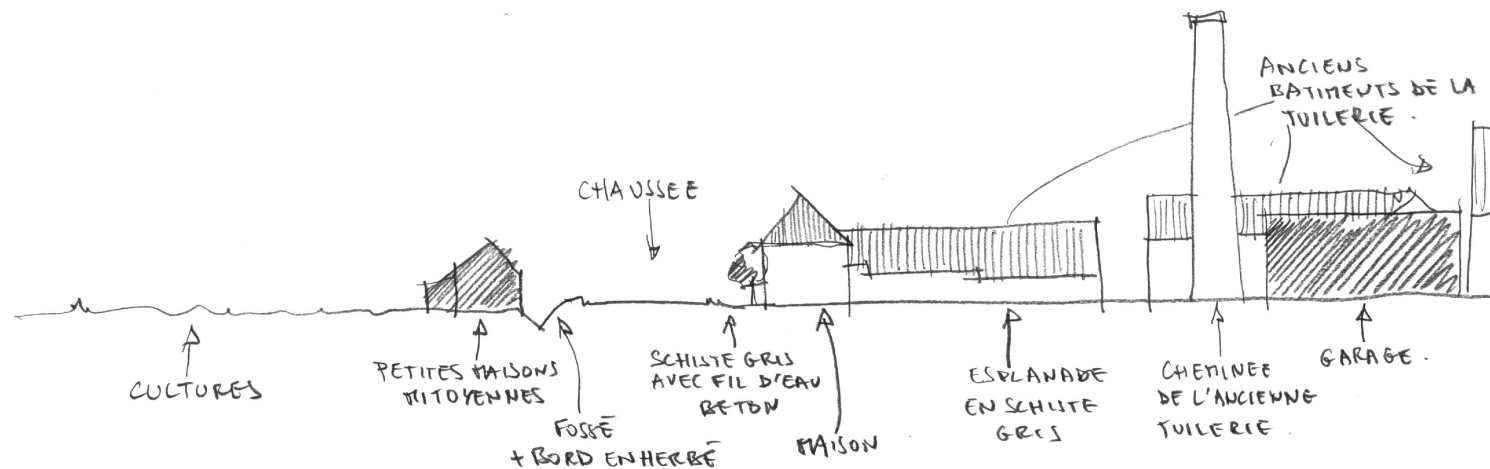 ANCIENS
BATIMENTS DE LA
TUILERIE.
CHAUSSEE
CULTURES
PETITES MAISONS
MITOYENNES
FOSSÉ
+ BORD ENHERBÉ
SCHISTE GRIS
AVEC FIL D'EAU
BETON
MAISON
ESPLANADE
EN SCHISTE
GRIS
CHEMINEE
DE L'ANCIENNE
TUILERIE.
GARAGE.